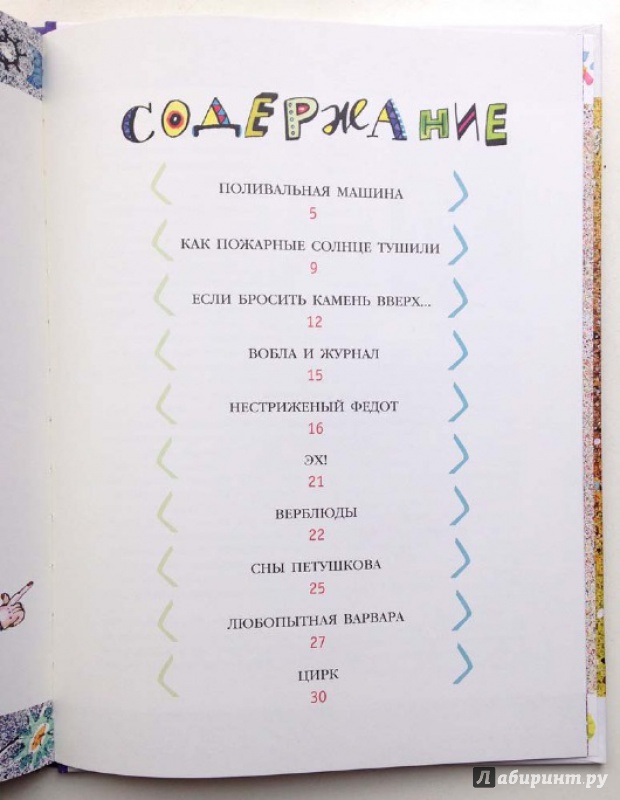 СОДЕРЖАНИЕ
ПОЛИВАЛЬНАЯ МАШИНА
5
КАК ПОЖАРНЫЕ СОЛНЦЕ ТУШИЛИ
9
ЕСЛИ БРОСИТЬ КАМЕНЬ ВВЕРХ...
12
ВОБЛА И ЖУРНАЛ
15
НЕСТРИЖЕНЫЙ ФЕДОТ
16
ЭХ!
21
ВЕРБЛЮДЫ
22
СНЫ ПЕТУШКОВА
25
ЛЮБОПЫТНАЯ ВАРВАРА
27
ЦИРК
30
Лабиринт.ру